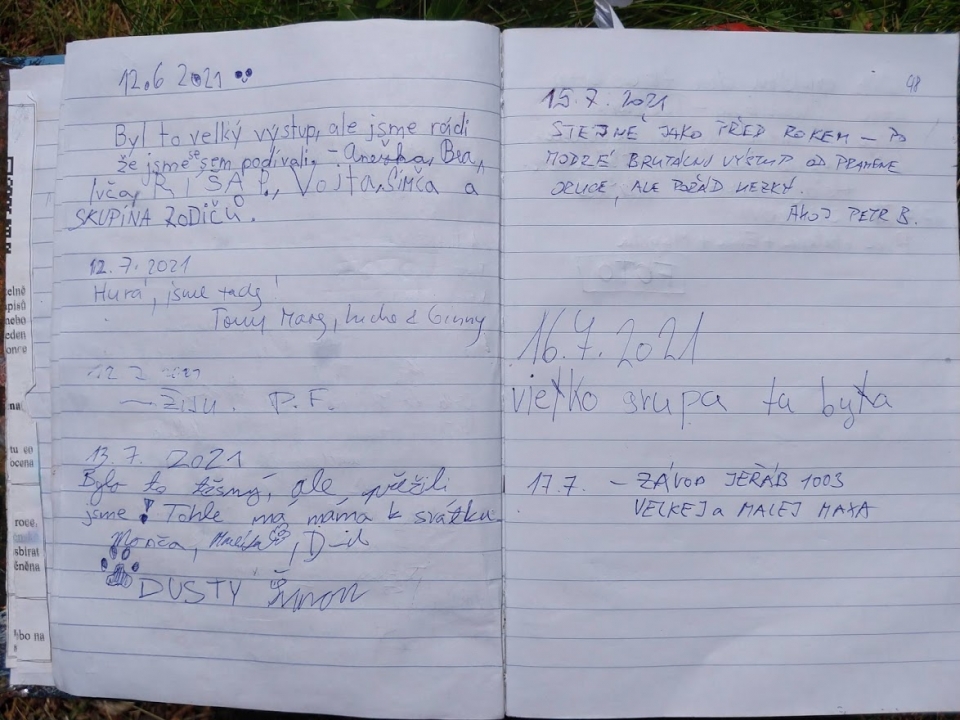 12.6 2021
Byl to velký výstup, ale jsme rádi
že jsme se sem podívali, - Anežka, Bea,
RIŠA, Vojta, Simča a
SKUPINA RODIČŮ.
12.7.2021
Hurá, jsme tady!
Tom, & Ginny
- ŽIJU. P.F.
13.7. 2021
Bylo to těsný, ale přežili
jsme! Tohle má máma k svátku.
Monča,
DUSTY
48
15.7. 2021
STEJNĚ JAKO PŘED ROKEM - PO
MODRÉ BRUTÁLNÍ VÝSTUP OD PRAMENE
ORLICE, ALE POŘÁD HEZKÝ.
AHOJ PETR B.
16.7.2021
vielko grupa tu była
17.7. - ZÁVOD JEŘÁB 1003
VELKEJ a MALEJ MAXA
elně
pisů
nebo
eden
once
tu co
ocena
roce.
sbírat
ěněna
bo na